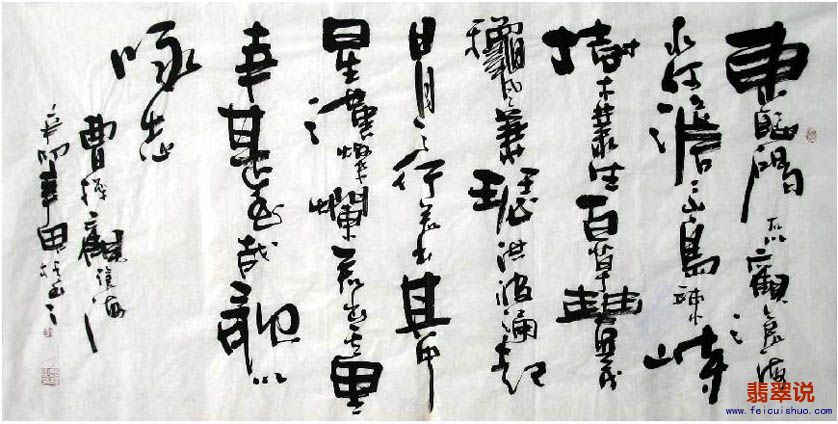 東臨碣石以觀滄海
水何澹澹山島竦峙
樹木叢生百草豐茂
龝風蕭瑟洪波涌起
日月之行若出其中
星漢燦爛若出其里
幸甚至哉歌以
咏志
曹操觀滄海
辛卯
翡翠说
www.feicuishuo.com